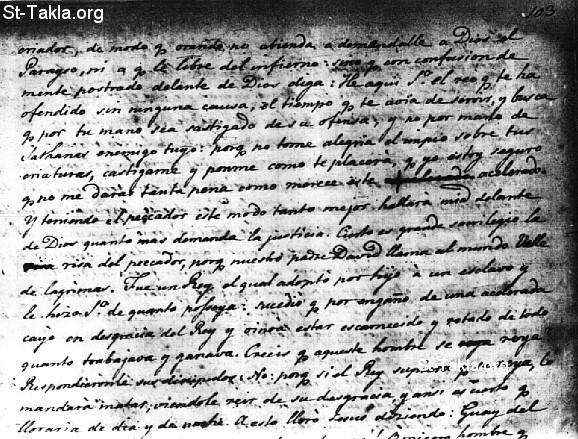 St-Takla.org
103
criador, de modo q̃ orando no atienda a demandalle a Dios el
Parayso, ni a q̃ le libre del infierno: sino q̃ con confusion de
mente postrado delante de Dios diga: He aqui Sr. el reo q̃ te ha
ofendido sin ninguna causa, el tiempo q̃ te avia de servir, y busca
q̃ por tu mano sea castigado de su ofensa, y no por mano de
Sathanas enemigo tuyo: porq̃ no tome alegria el impio sobre tus
criaturas, castigame y poneme como te placera, q̃ yo estoy seguro
q̃ no me daras tanta pena como merece este acelerado.
Y teniendo el peccador este modo tanto mejor hallara mid delante
de Dios quanto mas demanda la justicia. Cierto es grande sacrilegio la
risa del peccador, porq̃ nuestro padre David llama al mundo Valle
de lagrimas. Fue un Rey el qual adopto por hijo à un esclavo y
le hizo Sr. de quanto poseya: sucedio q̃ por engaño de una acelerada
cayo en desgracia del Rey y vinera estar escarnecido y votado de todo
quanto trabajava y ganava. Creeis q̃ aqueste hombre se reya?
Respondieronle sus discipulos: No: porq̃ si el Rey supiera q̃ se reya, lo
mandarà matar, viendole reir de su desgracia, y ansi es cierto q̃
lloraria de dia y de noche. A esto llorò Jesus diziendo: Guay del
hombre q̃
St-Takla.org